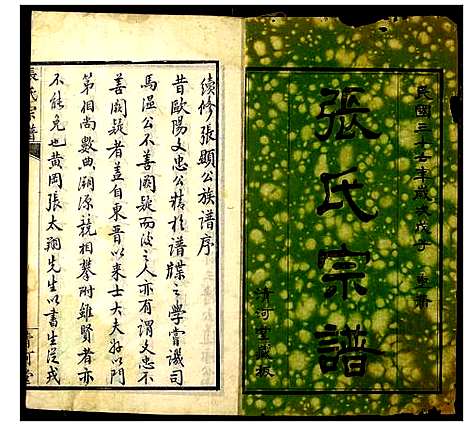 民國三十七年歲次戊子重修
張氏宗譜
清河堂藏板
續修張顯公族譜序
昔歐陽文忠公精於譜牒之學嘗譏司
馬溫公不善闕疑而後之人亦有謂文忠不
善闕疑者蓋自東晉以來士大夫好以門
第相尚數典溯源競相攀附雖賢者亦
不能免也黄岡張太翔先生以書生從戎
張氏宗譜
清河堂